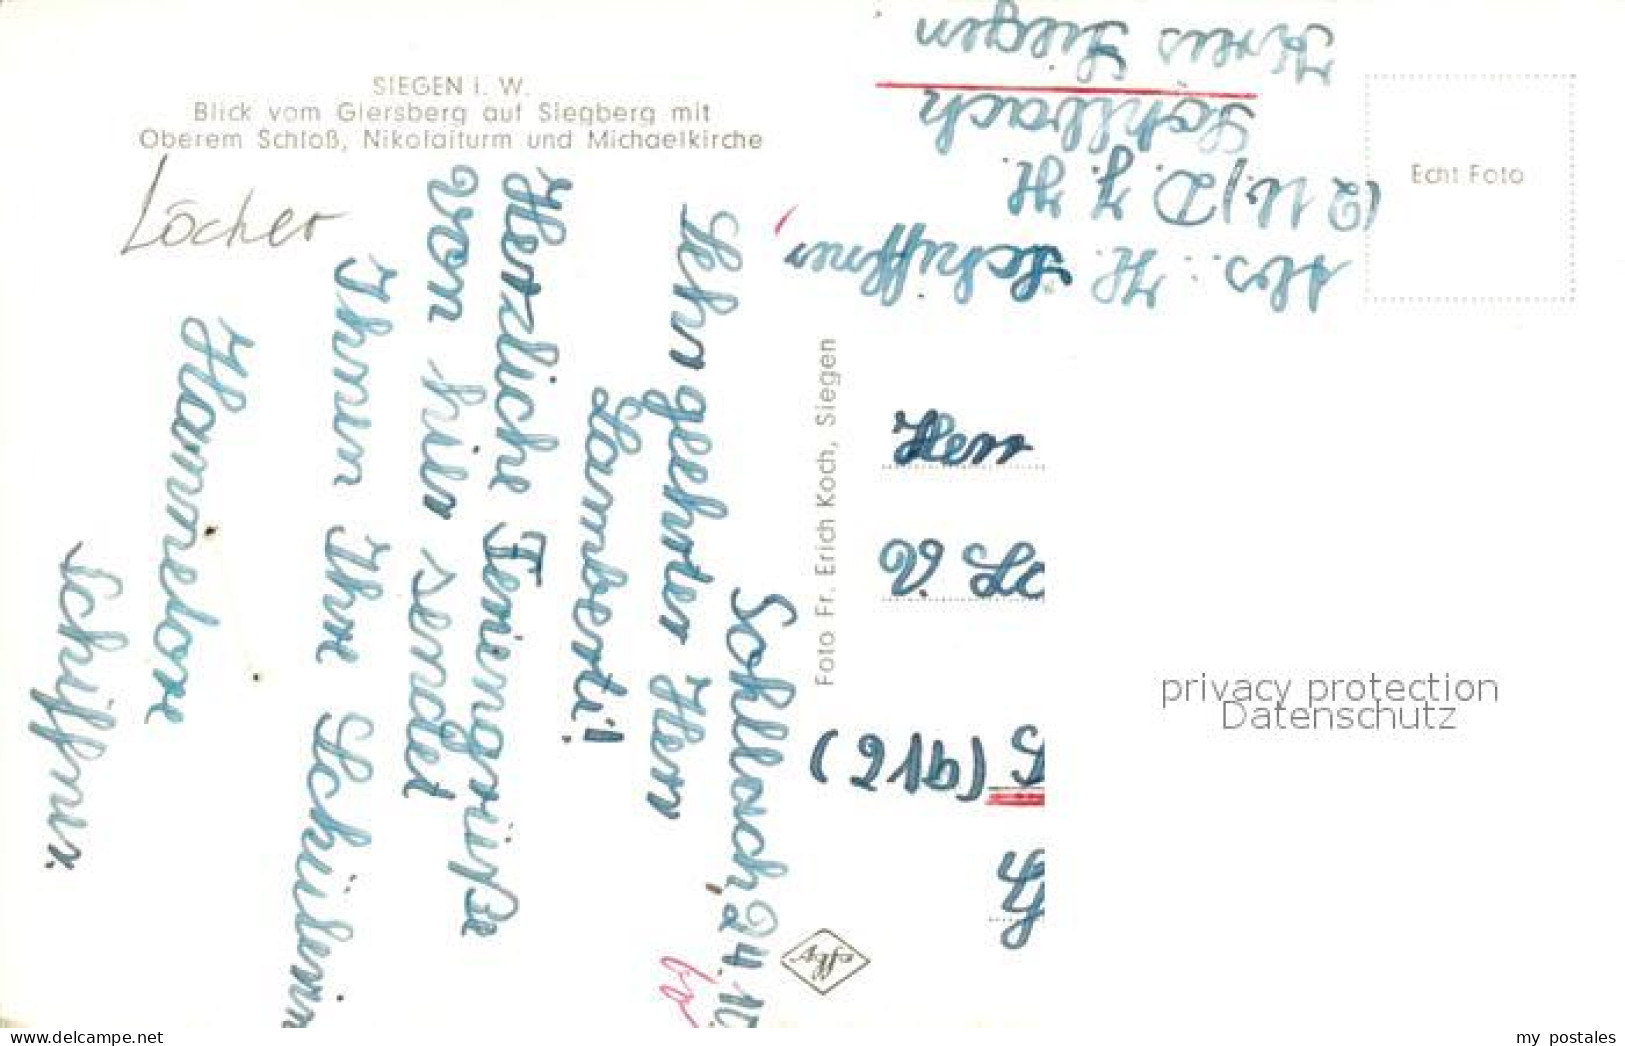 SIEGEN i. W.
Blick vom Giersberg auf Siegberg mit
Oberem Schloß, Nikolaiturm und Michaelkirche
Löcher
Sohlbach, 24.10.
Sehr geehrter Herr
Lamberti!
Herzliche Feriengrüße
von hier sendet
Ihnen Ihre Schülerin
Hannelore
Schiffner.
Foto Fr. Erich Koch, Siegen
Abs.: H. Schiffner,
D. J. H.
Sohlbach
Kreis Siegen
Echt Foto
Herr
V. La
(916)
Agfa
privacy protection
Datenschutz
delcampe.net
my_postales